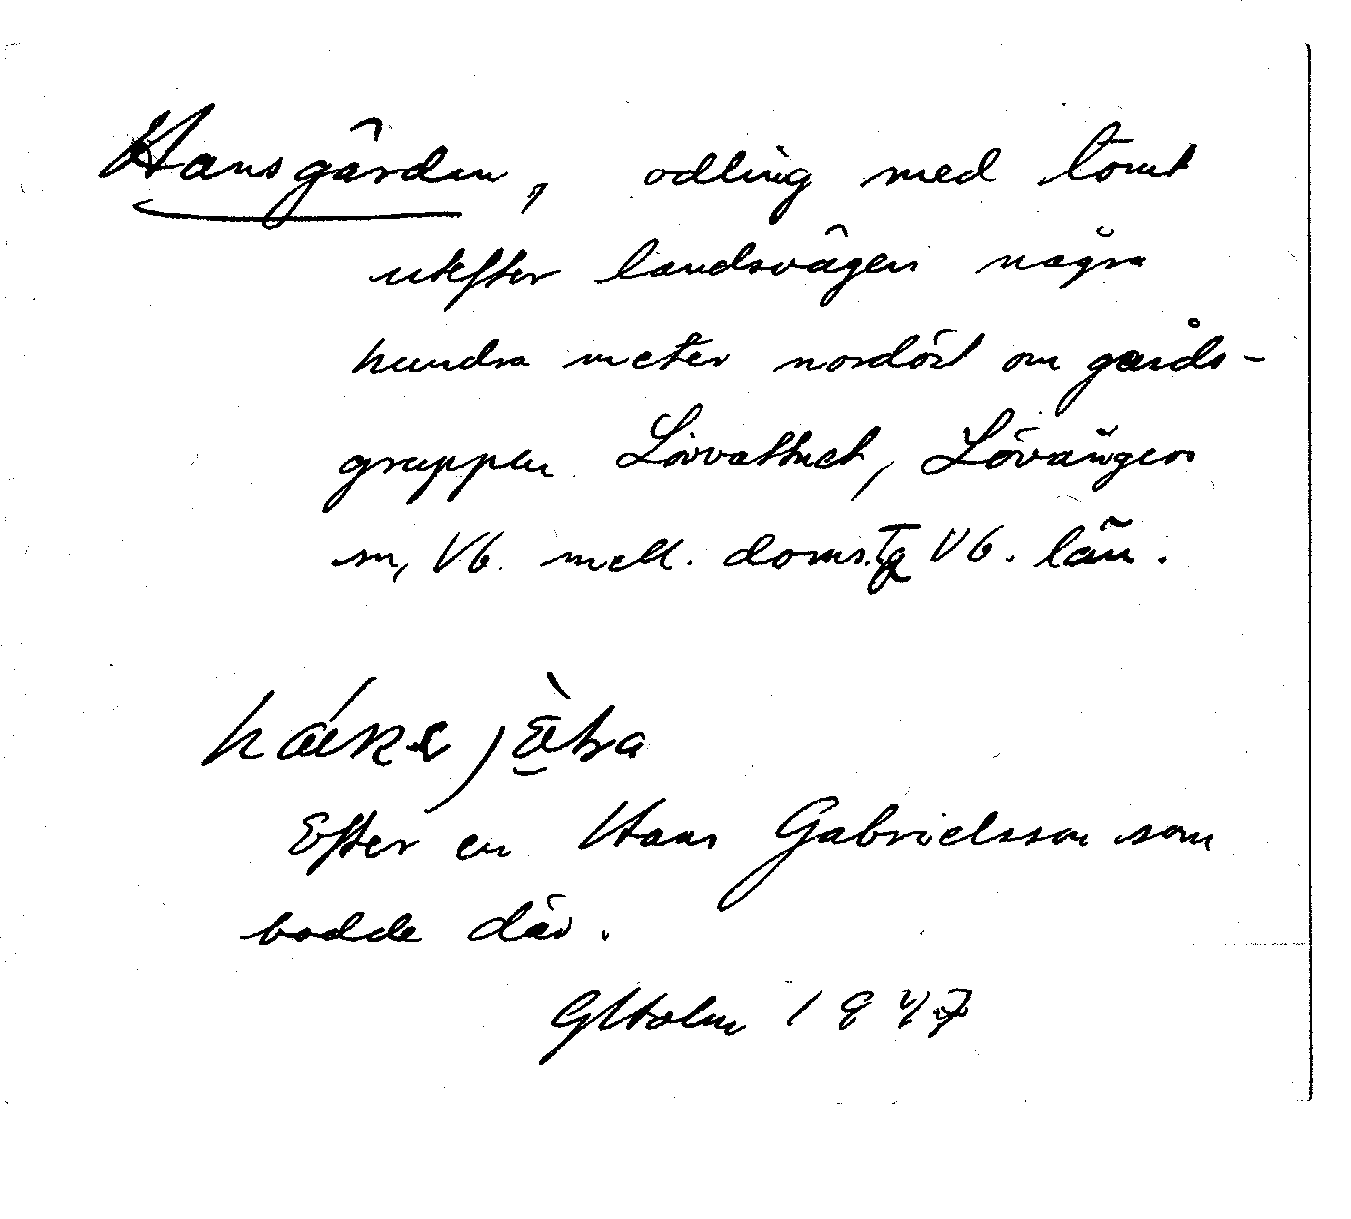 Hansgården, odling med tomt
utefter landsvägen några
hundra meter nordöst om gårds-
gruppen Lövvattnet, Lövångers
sn, Vb. mell. doms.tg Vb. län.
Efter en Hans Gabrielsson som
bodde där.
GHolm 1947